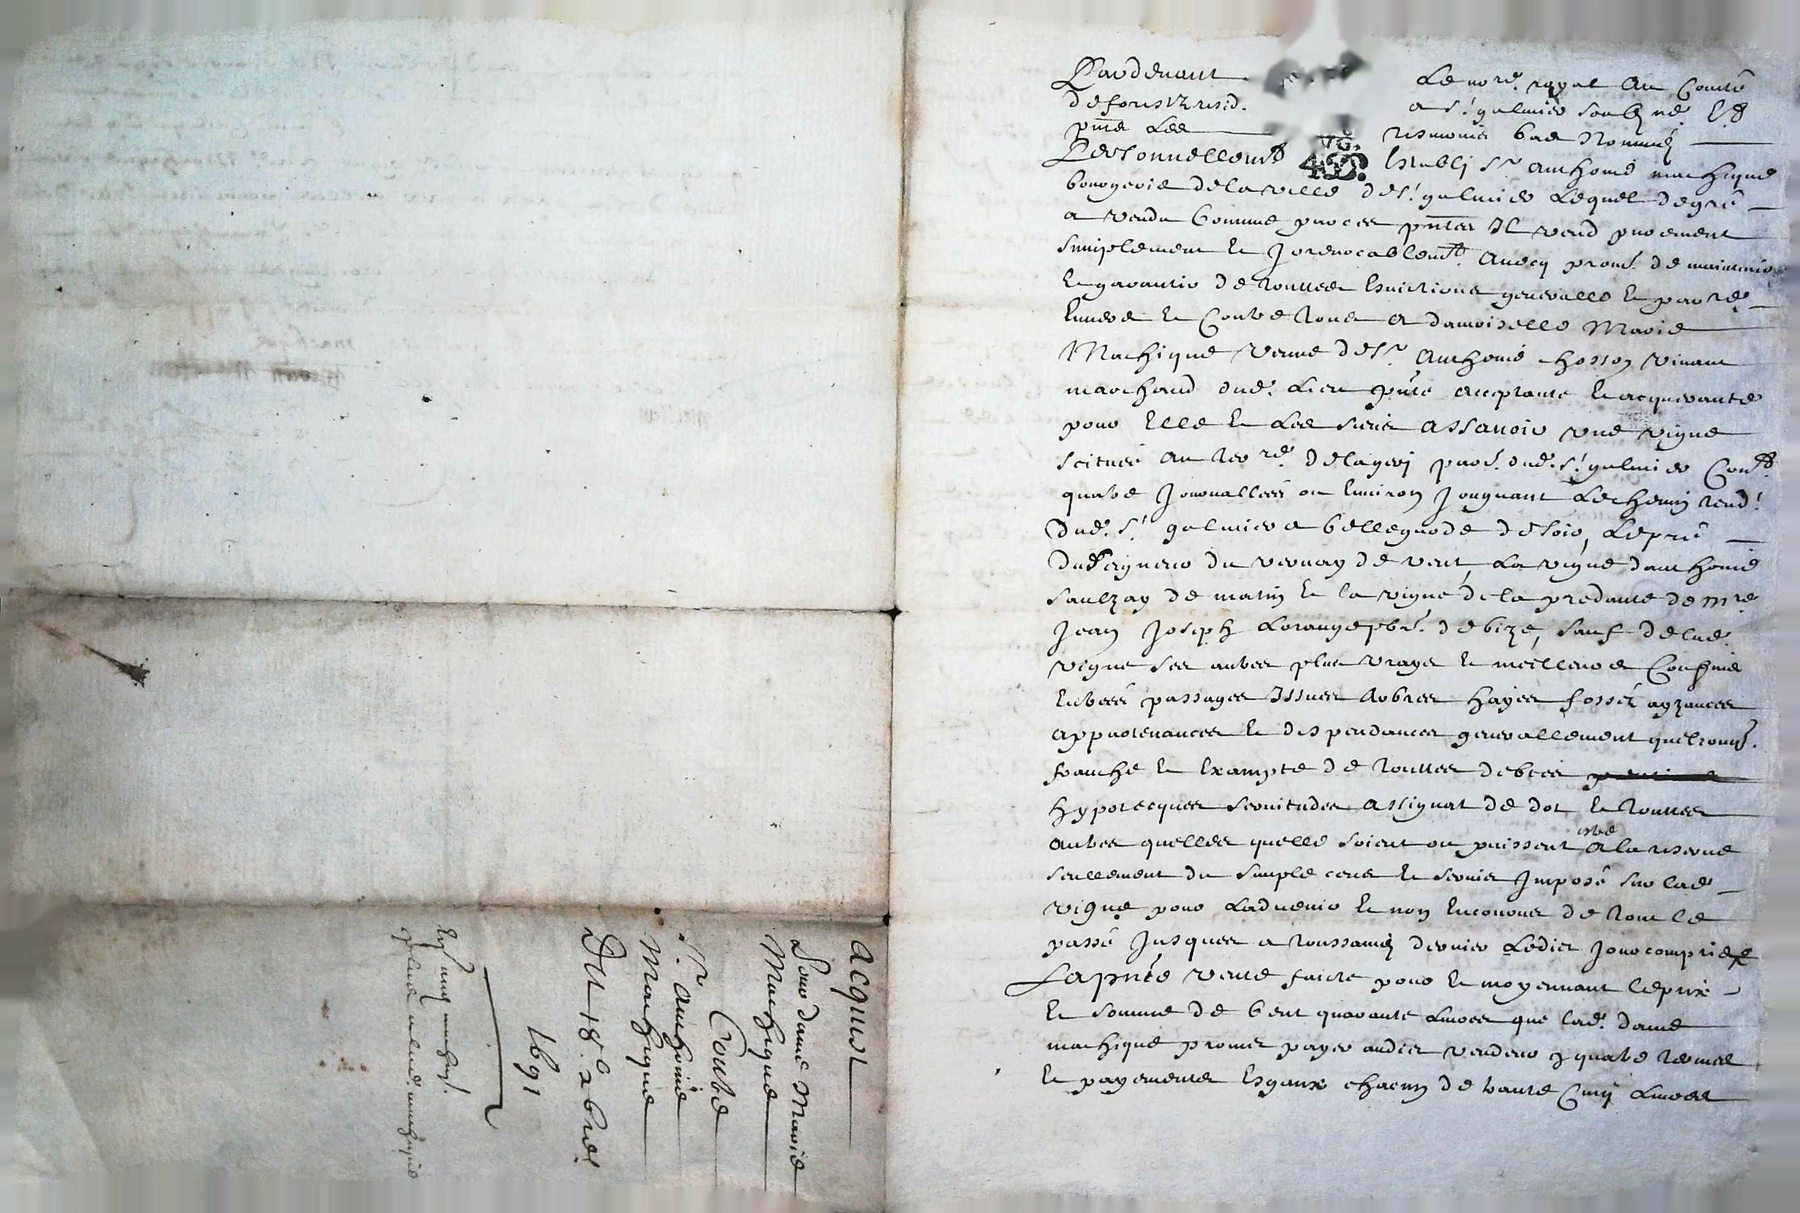 Pardevant Le no.re royal au Comté
de forestz resid. a St galmier soubz.né Et
pnts Les tesmoins bas Nommés
Personnellemt Estably Sr Anthoine machique
bourgeois de la ville de St galmier Lequel de gré
a vendu Comme par ces pntes Il vend purement
simplement et Irrevocablemt Avecq prom. de maintenir
et garantir de touttes Evictions generalle et par.re
Envers et Contre tous a damoiselle Marie
Machique veuve de Sr Anthoine chosson vivant
marchand dud. Lieu pnte acceptante et acquerante
pour Elle et Les siens assavoir une vigne
scituée au ter.re de la geri par. dud. St galmier Cont
quatre Journallées ou Environ Jougnant Le chemin tend.
dud. St galmier a bellegarde de soir, Le pré
du Seigneur du vernay de vent, La vigne danthoine
saulzay de matin et la vigne de la prebande de mre
Jean Joseph Lorange pbr. de bize, sauf de lad.
vigne ses autres plus vrays et meilleurs Confins
Entrées passages Issues Arbres hayes fossés ayzances
appartenances et despendances generallement quelconqs.
franche et Exampte de touttes debtes
hypotecques servitudes assignat de dot et touttes
autres quelles quelle soient ou puissent estre a la reserve
seullement du simple cens et servis Imposé sur lad.
vigne pour Ladvenir et non Encourus de tout le
passé Jusques a toussaints dernier Ledict Jour compris
La pnte vente faicte pour et moyennant le prix
et somme de Cent quarante Livres que lad. dame
machique promet payer audict vendeur en quatre termes
et payements Esgaux chacun de trante Cinq Livres
acquist
Pour dame Marie
Machique
Contre
Sr Anthoine
Machique
Du 18e xbre
1691